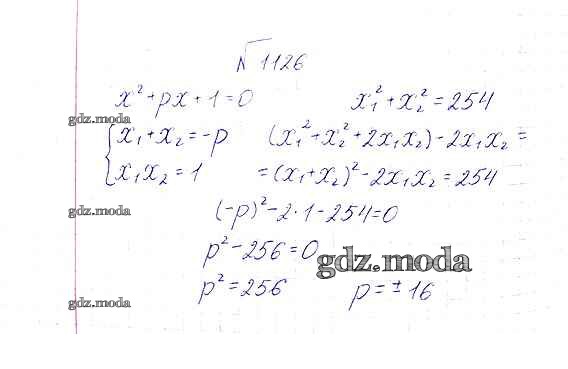 № 1126
x² + px + 1 = 0    x₁² + x₂² = 254
gdz.moda
{ x₁ + x₂ = -p    (x₁² + x₂² + 2x₁x₂) - 2x₁x₂ =
x₁x₂ = 1    = (x₁ + x₂)² - 2x₁x₂ = 254
gdz.moda
(-p)² - 2·1 - 254 = 0
p² - 256 = 0
gdz.moda
p² = 256    p = ± 16
gdz.moda